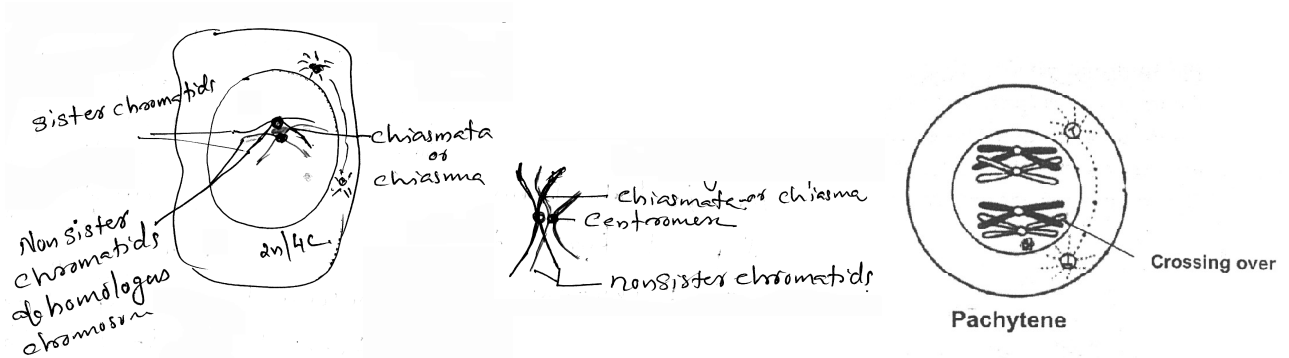 sister chromatids
chiasmata
or
chiasma
Non sister
chromatids
of homologus
chromosom
2n/4c
chiasmata or chiasma
Centromere
nonsister chromatids
Crossing over
Pachytene